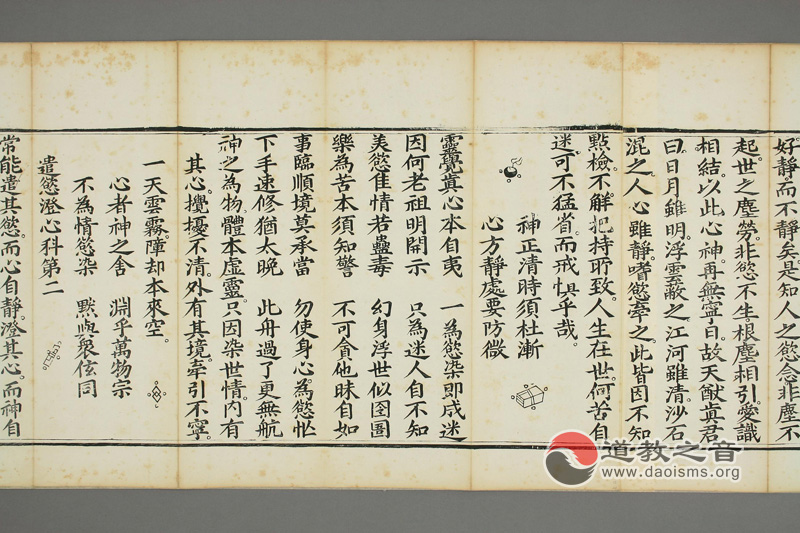 好靜而不靜矣。是知人之慾念非塵不
起。世之塵勞。非慾不生。根塵相引。愛識
相結。以此心神。再無寧日。故天猷眞君
曰。日月雖明。浮雲蔽之。江河雖清。沙石
混之。人心雖靜。嗜慾牽之。此皆因不知
點檢。不解把持所致。人生在世。何苦自
迷。可不猛省。而戒惧乎哉。
神正清時須杜漸
心方靜處要防微
靈覺眞心本自夷 一為慾染即成迷
因何老祖明開示 只為迷人自不知
美慾隹情若蠱毒 幻身浮世似囹圄
樂為苦本須知警 不可貪他昧自如
事臨順境莫承當 勿使身心為慾忙
下手速修猶太晚 此舟過了更無航
神之為物。體本虛靈。只因染世情。內有
其心。攪擾不清。外有其境。牽引不寧。
一天雲霧。障却本來空。
心者神之舍 淵乎萬物宗
不為情慾染 黙與衆佉同
遣慾澄心科第二
常能遣其慾。而心自靜。澄其心。而神自
道教之音
www.daoisms.org